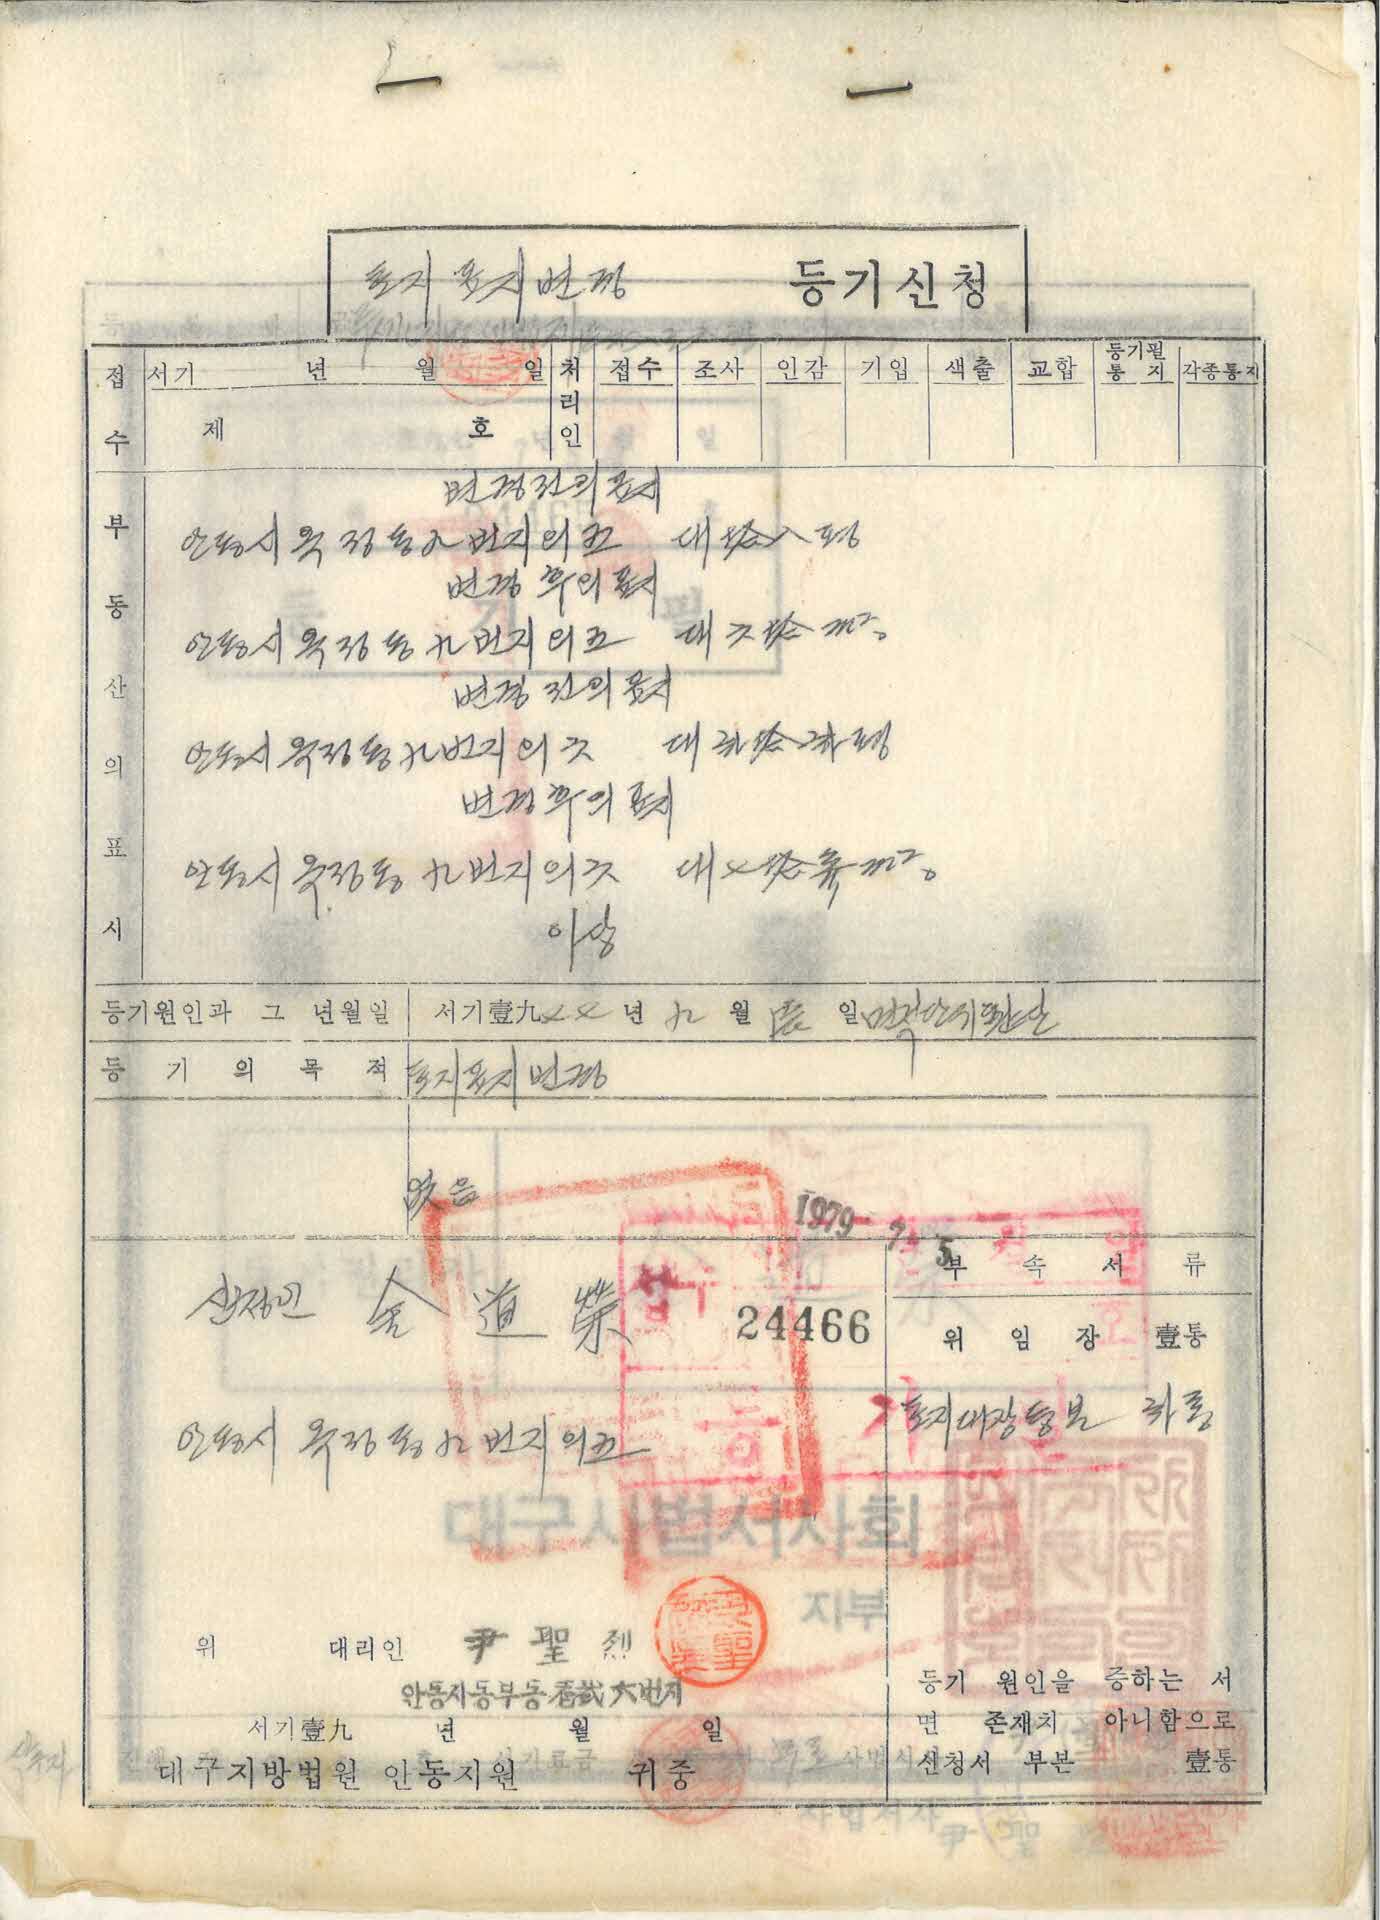 토지표시변경 등기신청
접수 서기 년 월 일 처리인 접수 조사 인감 기입 색출 교합 등기필통지 각종통지
제 호
부동산의표시
변경전의 표시
안동시 옥정동 九번지의 五 대 拾八평
변경후의 표시
안동시 옥정동 九번지의 五 대 六拾㎡
변경전의 표시
안동시 옥정동 九번지의 六 대 弐拾弐평
변경후의 표시
안동시 옥정동 九번지의 六 대 七拾參㎡
이상
등기원인과 그 년월일 서기壹九七七년 九월 일 면적단위환산
등기의 목적 토지표시변경
없음
1979 7. 5
부속서류
신청인 金道榮
접수
24466
위임장 壹통
토지대장등본 弐통
안동시 옥정동 九번지의 五
대구사법서사회
지부
위 대리인 尹聖烈
안동시동부동 번지
등기 원인을 증하는 서
면 존재치 아니함으로
신청서 부본 壹통
서기壹九 년 월 일
대구지방법원 안동지원 귀중